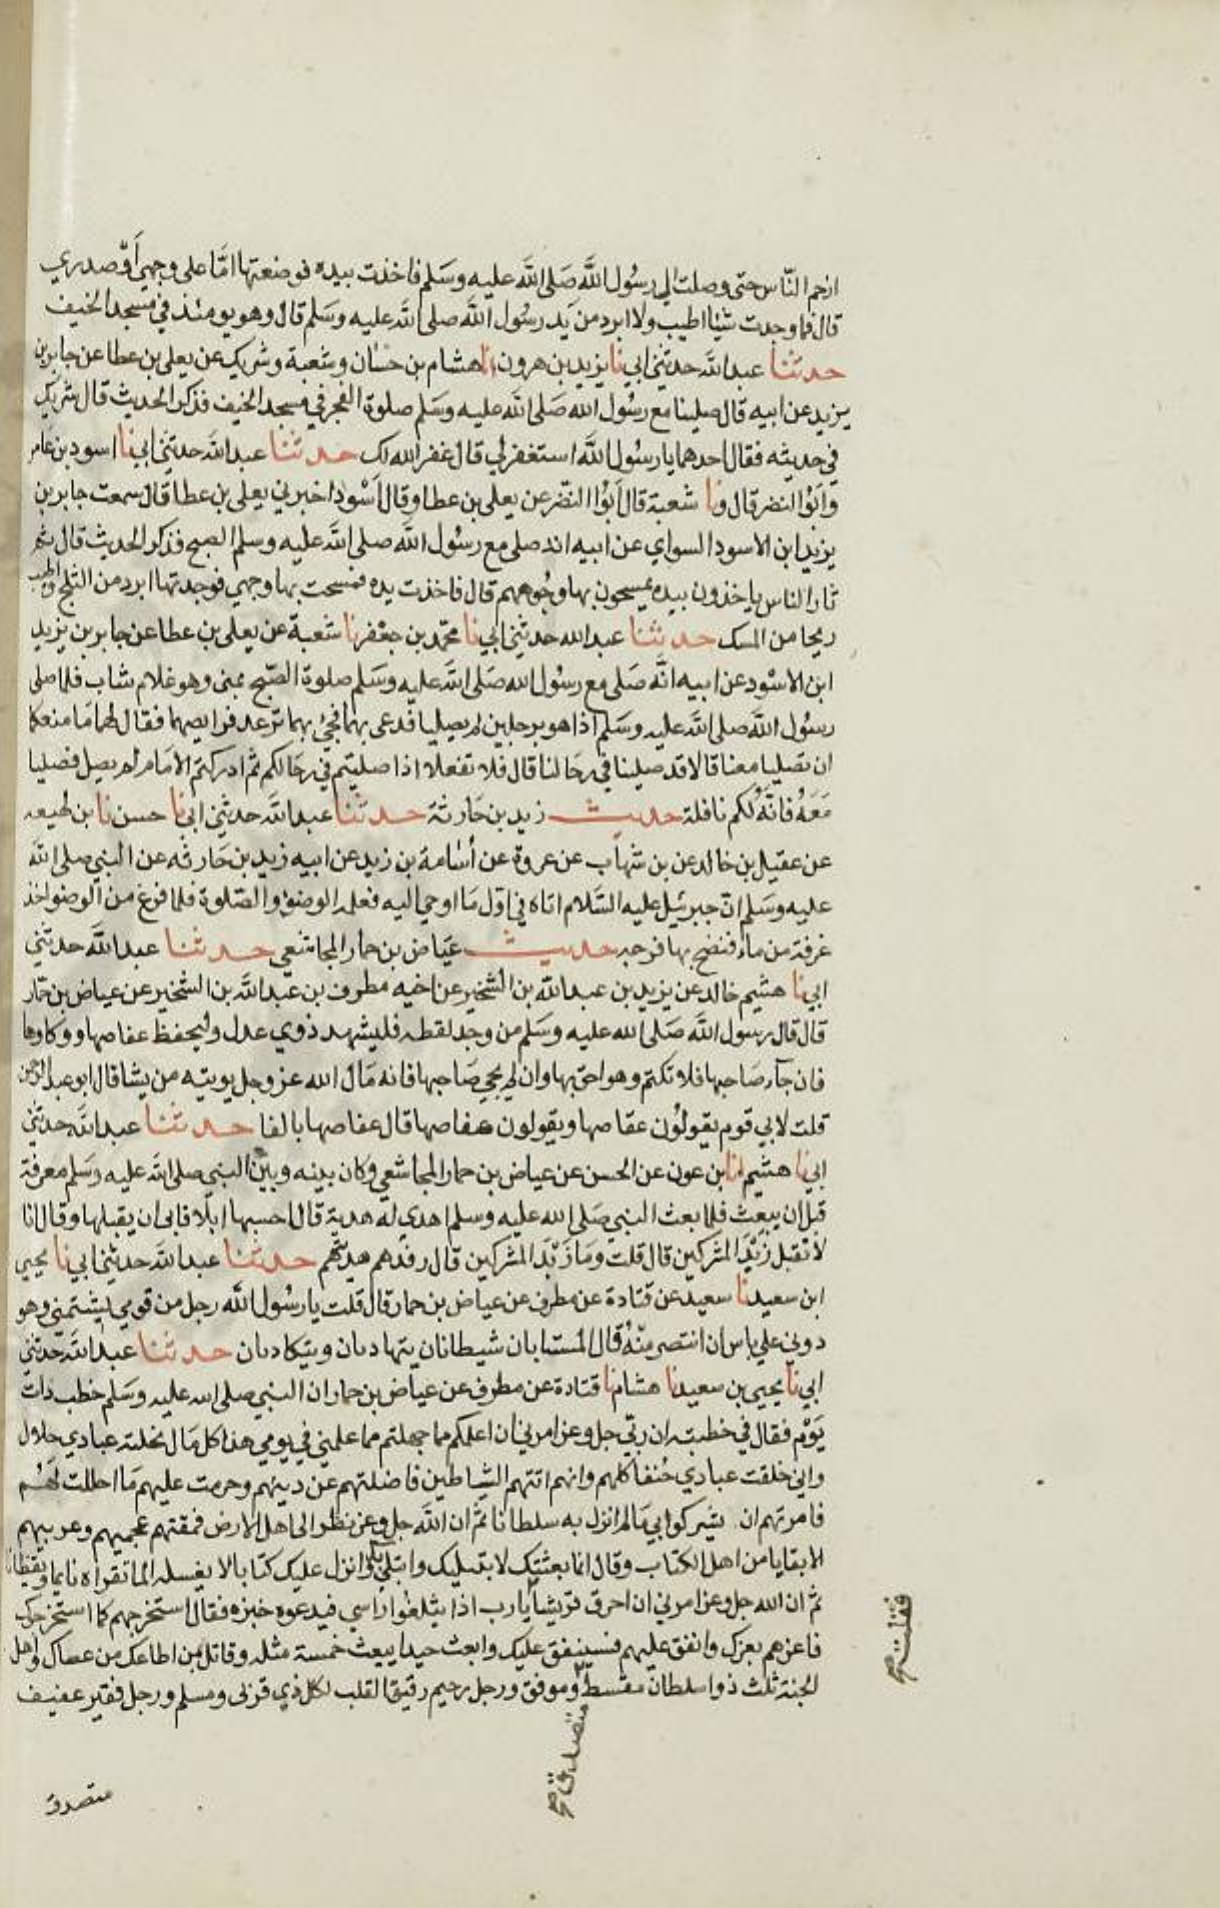 ازحم الناس حتى وصلت الى رسُول اللَّه صَلى اللَّه عليه وسَلم فاخذت بيده فوضعتها امَّا على وجهي أوْ صدري
قال فما وجدت شيئا اطيب ولا ابرد من يَد رسُول اللَّه صلى اللَّه عليه وسَلم قال وهو يومئذ في مسجد الخيف
حدثنا عبد اللَّه حدثني ابي نا يزيد بن هرون انا هشام بن حسّان وشعبة وشريك عن يعلى بن عطا عن جابر بن
يزيد عن ابيه قال صلينا مع رسُول الله صَلى الله عليه وسَلم صلوة الفجر في مسجد الخيف فذكر الحديث قال شريك
في حديثه فقال احدهما يا رسُول اللَّه استغفر لي قال غفر الله لك حدثنا عبد اللَّه حدثني ابي نا اسود بن عامر
وابُوا النضر قال ونا شعبة قال أبُوا النضر عن يعلى بن عطا وقال أسْود اخبرني يعلى بن عطا قال سمعت جابر بن
يزيد ابن الاسود السواي عن ابيه انه صلى مع رسُول اللَّه صلى اللَّه عليه وسلم الصبح فذكر الحديث قال ثم
ثار الناس ياخذون بيده يمسحون بها وجُوههم قال فاخذت يده فمسحت بها وجهي فوجدتها ابرد من الثلج واطيب
ريحا من المسك حدثنا عبد الله حدثني ابي نا محمد بن جعْفر نا شعبة عن يعلى بن عطا عن جابر بن يزيد
ابن الاسْود عن ابيه انَّه صَلى مع رسُول الله صَلى اللَّه عليه وسَلم صلوة الصّبح بمنى وهو غلام شاب فلما صلى
رسُول اللَّه صلى اللَّه عليه وسَلم اذا هو برجلين لم يصليا فدعى بهما فجئ بهما ترعد فرايصهما فقال لهما مَا منعكما
ان تصليا معنا قالا قد صلينا في رحَالنا قال فلا تفعلا اذا صليتم في رحَالكم ثم ادركتم الامَام لم يصل فصليا
مَعَهُ فانَّهَ لكم نافلة حديث زيد بن حَارثة حدثنا عبد اللَّه حدثني ابي نا حسن نا بن لهيعه
عن عقيل بن خالد عن بن شهاب عن عروة عن أسَامة بن زيد عن ابيه زيد بن حَارثه عن النبي صلى اللَّه
عليه وسَلم انّ جبرئيل عليه السَّلام اتاه في اوّل مَا اوحي اليه فعلمه الوضوْ والصّلوة فلما فرغ من الوضو اخذ
غرفة من ماء فنضح بها فرجه حديث عيَاض بن حمار المجاشعي حدثنا عبد اللَّه حدثني
ابي نا هشيم خالد عن يزيد بن عبد اللَّه بن الشخير عن اخيه مطرف بن عبد اللَّه بن الشخير عن عياض بن حمّار
قال قال رسول اللَّه صَلى الله عليه وسَلم من وجد لقطه فليشهد ذوي عدل وليحفظ عفاصها ووكاوها
فان جآء صَاحبها فلا تكتم وهو احق بها وان لم يجي صَاحبها فانه مَال الله عز وجل يويتيه من يشا قال ابو عبد الرحمن
قلت لابي قوم يقولُون عقاصها ويقولون عفاصها قال عفاصها بالفا حدثنا عبد اللَّه حدثني
ابي نا هشيم انا بن عون عن الحسن عن عياض بن حمار المجاشعي وكان بينه وبين النبي صلى الله عليه وسَلم معرفة
قبل ان يبعث فلما بعث النبي صَلى الله عليه وسلم اهدى له هدية قال احسبها ابلا فابى ان يقبلها وقال انا
لا نقبل زبْد المشركين قال قلت ومَا زبْد المشركين قال رفدهم هديتهم حدثنا عبد اللَّه حدثني ابي نا يحيى
ابن سعيد نا سعيد عن قتادة عن مطرف عن عياض بن حمار قال قلت يا رسُول اللَّه رجل من قومي يشتمني وهو
دوني علي باس ان انتصر منْهُ قال المستبان شيطانان يتهادىان ويتكادىان حدثنا عبد اللَّه حدثني
ابي نا يحيى بن سعيد نا هشام نا قتادة عن مطرف عن عياض بن حمار ان النبي صلى الله عليه وسَلم خطب ذات
يَوْم فقال في خطبته ان ربّي جل وعز امرني ان اعلمكم ما جهلتم مما علمني في يومي هذا كل مَال نحلته عبادي حلال
واني خلقت عبادي حُنفا كلهم وانهم اتتهم الشياطين فاضلتهم عن دينهم وحرمت عليهم مَا احللت لهُم
فامرتهم ان يشركوا بي مَا لم انزل به سلطانا ثمّ ان اللَّه جل وعز نظر الى اهل الارض فمقتهم عجميهم وعربيهم
الا بقايا من اهل الكتاب وقال انما بعثتك لابتليك وابتلي بك وانزل عليك كتابا لا يغسله الما تقراه نايما ويقظانا
ثمّ ان الله جل وعز امرني ان احرق قريشا يارب اذا يثلغوا راسي فيدعوه خبزه فقال استخرجهم كما استخرجوك
فاغزهم نغزك وانفق عليهم فسينفق عليك وابعث جيدا يبعث خمسة مثله وقاتل بمن اطاعك من عصاك واهل
الجنة ثلث ذوا سلطان مقسط وموفق ورجل رحيم رقيق القلب لكل ذي قربى ومسلم ورجل فقير عفيف
متصدق
متصدق صح
فقلت صح